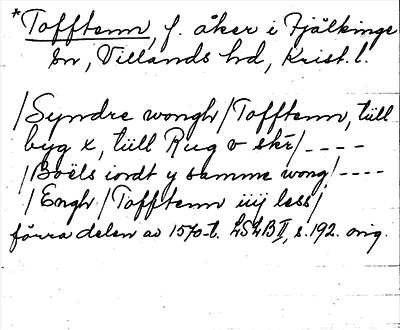 *Tofftenn, f. åker i Fjälkinge
sn, Villands hd, Krist. l.
/Syndre wongh/Tofftenn, tüll
byg x, tüll Rug v skr/ _ _ _ _
/Boëls iordt y samme wong/ _ _ _ _
/Engh/Tofftenn iiij less/
förra delen av 1570-t. LSLB II, s. 192. orig.